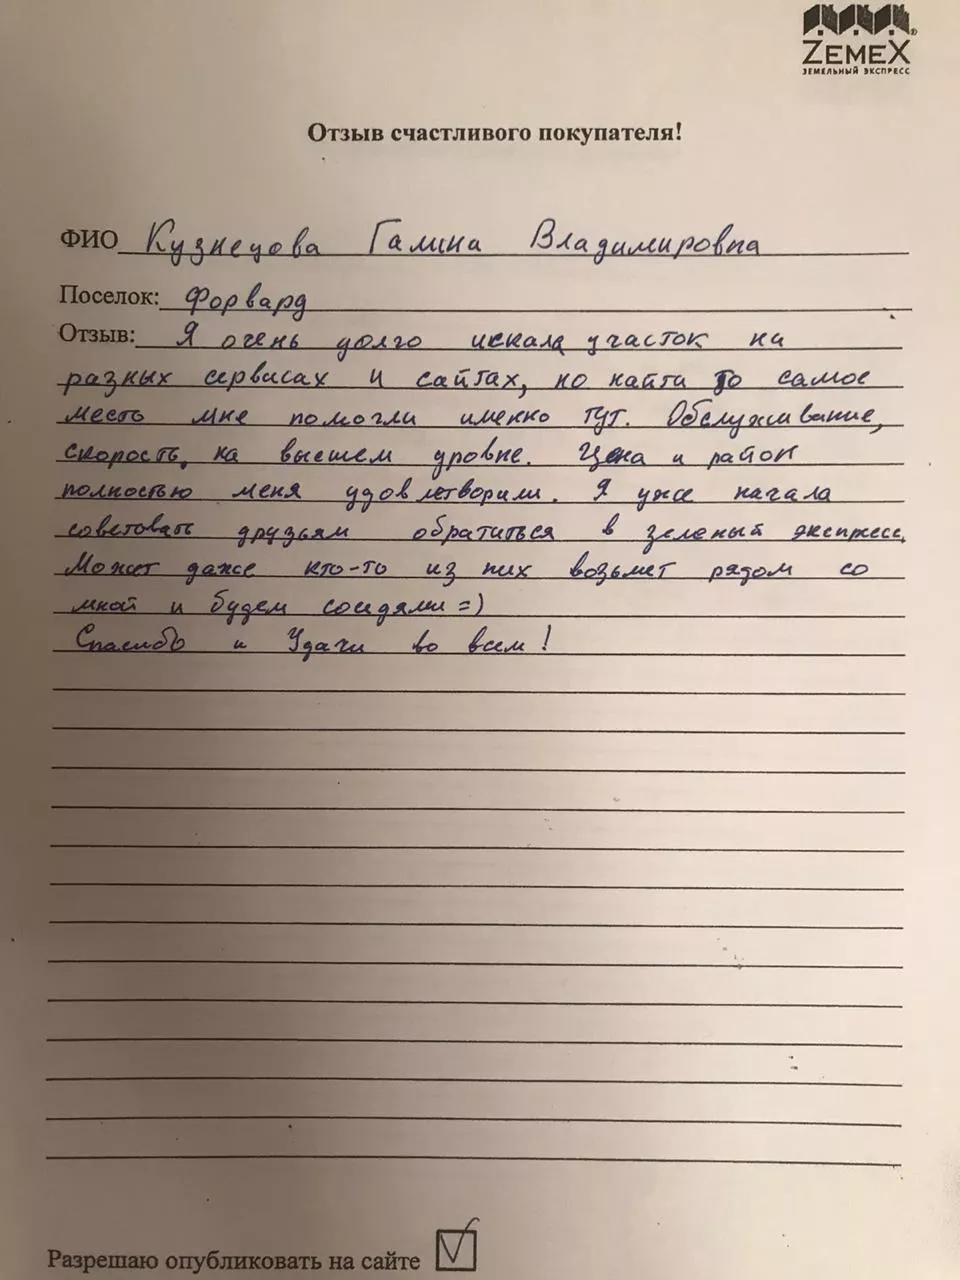 ZEMEX
ЗЕМЕЛЬНЫЙ ЭКСПРЕСС
Отзыв счастливого покупателя!
ФИО Кузнецова Галина Владимировна
Поселок: Форвард
Отзыв: Я очень долго искала участок на
разных сервисах и сайтах, но найти то самое
место мне помогли именно тут. Обслуживание,
скорость, на высшем уровне. Цена и район
полностью меня удовлетворили. Я уже начала
советовать друзьям обратиться в зеленый экспресс.
Может даже кто-то из них возьмет рядом со
мной и будем соидями =)
Спасибо и Удачи во всем!
Разрешаю опубликовать на сайте